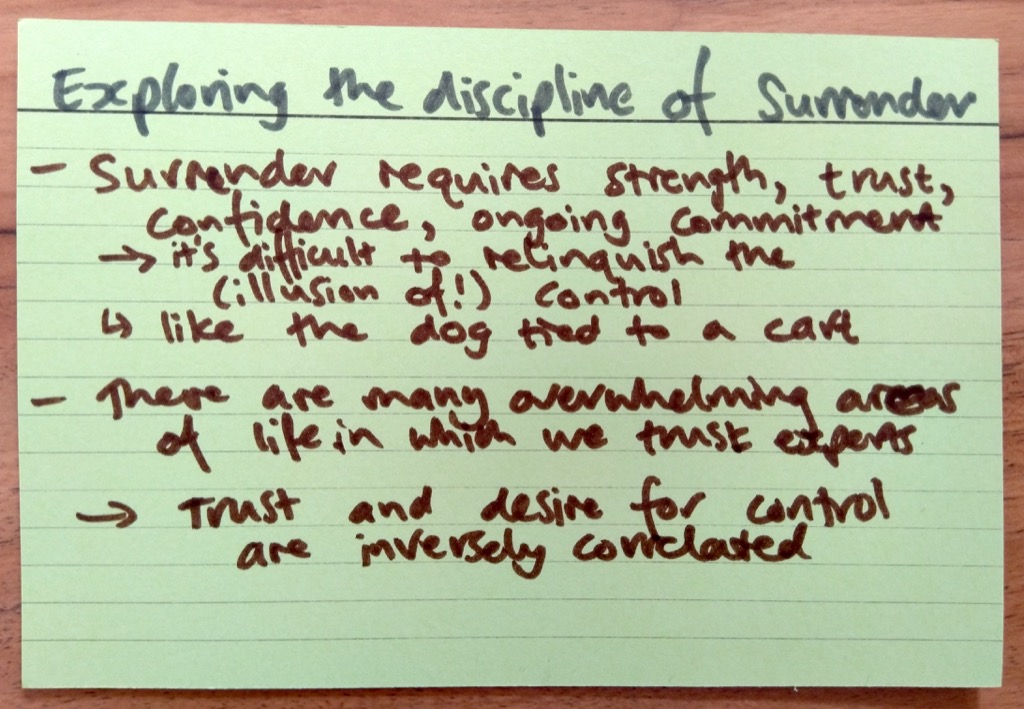 Exploring the discipline of Surrender
- Surrender requires strength, trust,
confidence, ongoing commitment
→ it's difficult to relinquish the
(illusion of!) control
↳ like the dog tied to a cart
- There are many overwhelming areas
of life in which we trust experts
→ Trust and desire for control
are inversely correlated